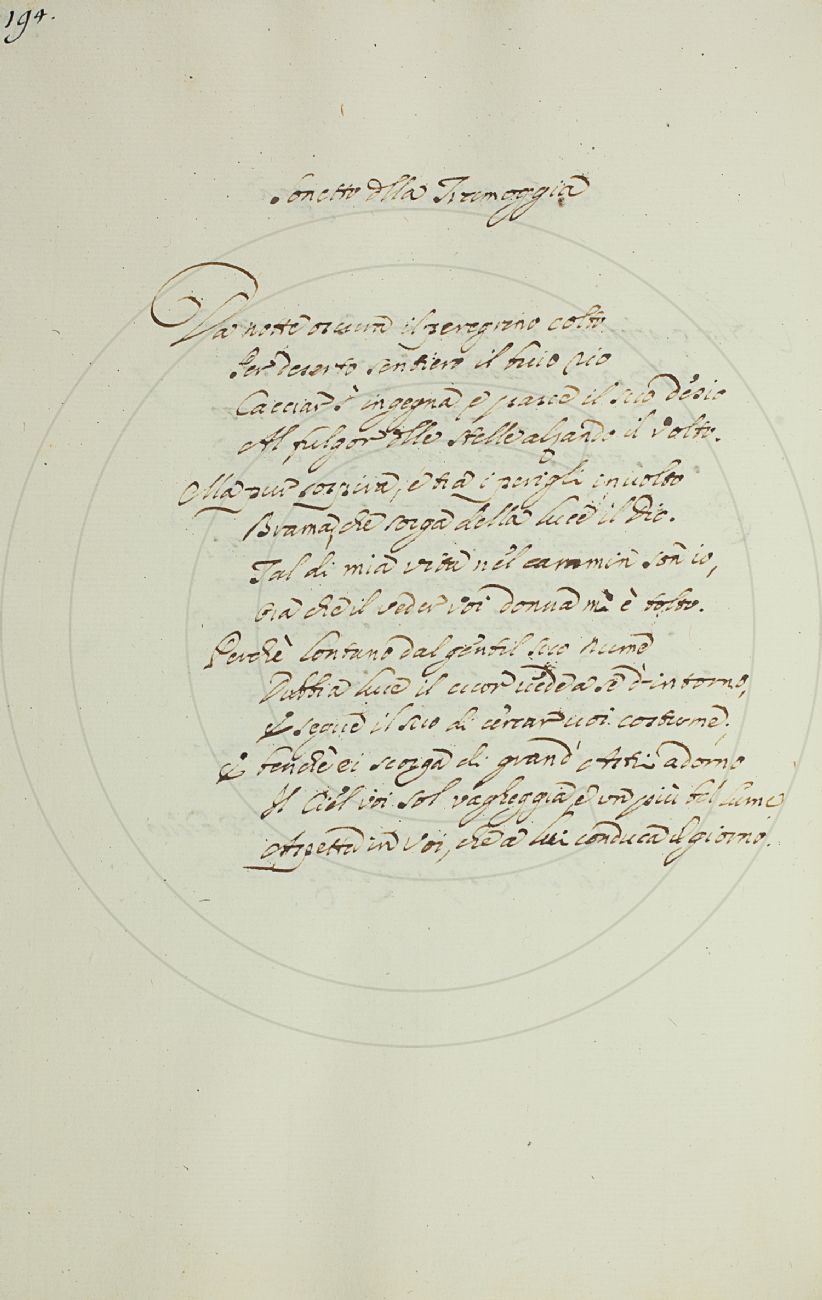 194.
Sonetto della Tramoggia
Da notte oscura il peregrino colto
Per deserto sentiero il buio rio
Cacciar s'ingegna e pasce il suo desio
Al fulgor delle stelle alzando il volto.
Ma pur sospira, e tra i perigli involto
Brama, che sorga della luce il Dio.
Tal di mia vita nel cammin son io,
Ora che il veder voi donna mi è tolto.
Perchè lontano dal gentil suo Nume
Dubbia luce il cuor vedease d'intorno,
E segue il suo di cercar voi costume;
E benchè ei scorga di grand' Astri adorno
Il Ciel voi sol vagheggia e un più bel lume
Aspetta in voi, che a lui conduca il giorno.